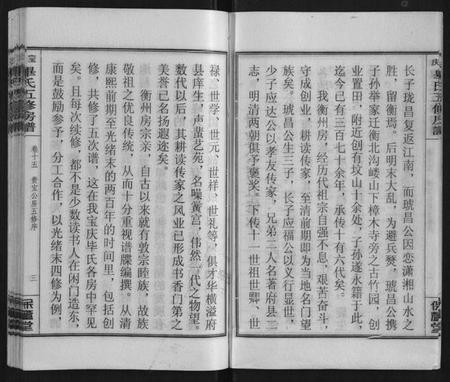 长子珑昌复返江南，而琥昌公因恋潇湘山水之
胜，留衡焉。后明末大乱，为避兵燹，琥昌公携
子孙举家迁往衡北沟嵝山下樟木寺旁之古竹园，创
立基业置田，附近创有坟山十余处，子孙遂永籍于此，
迄今已有三百七十余年，承传十有六代矣。
我衡州房，经历代祖宗自强不息，艰苦奋斗，
守成创业，耕读传家，至清前期即为当地名门望
族矣。琥昌公生三子，长子应福公以义行显世，
少子应达公以孝友传家，兄弟二人名著府县二
志，明清两朝俱予褒奖。下传十一世祖世卿、世
禄、世学、世元、世祥、世礼等，俱才华横溢府
县庠生，声蜚艺苑，名噪黉宫，伟然一代之物望。
数代以后，其耕读传家之风业已形成书香门第之
美誉已名扬遐迩矣。
衡州房宗亲，自古以来就有敦宗睦族，故族
敬祖之优良传统，从而十分重视谱牒编撰。从清
康熙前期至光绪末的两百年的时间里，包括创
修，共修了五次谱，这在我宝庆毕氏各房中罕见
矣。且每次续修，都不是少数读书人在闲门造东，
而是鼓励参予，分工合作，以光绪末四修为例，
毕氏五修房谱
卷十五
贵宝公房五修序
三